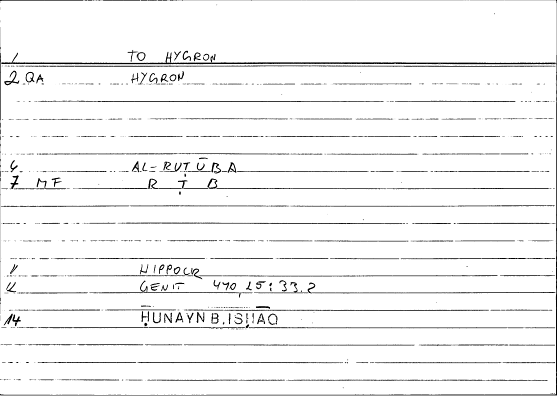 1 TO HYGRON
2 QA HYGRON
6 AL-RUṬŪBA
7 MF R Ṭ B
11 HIPPOCR
12 GENIT 470,15:33.2
14 ḤUNAYN B.ISḤĀQ